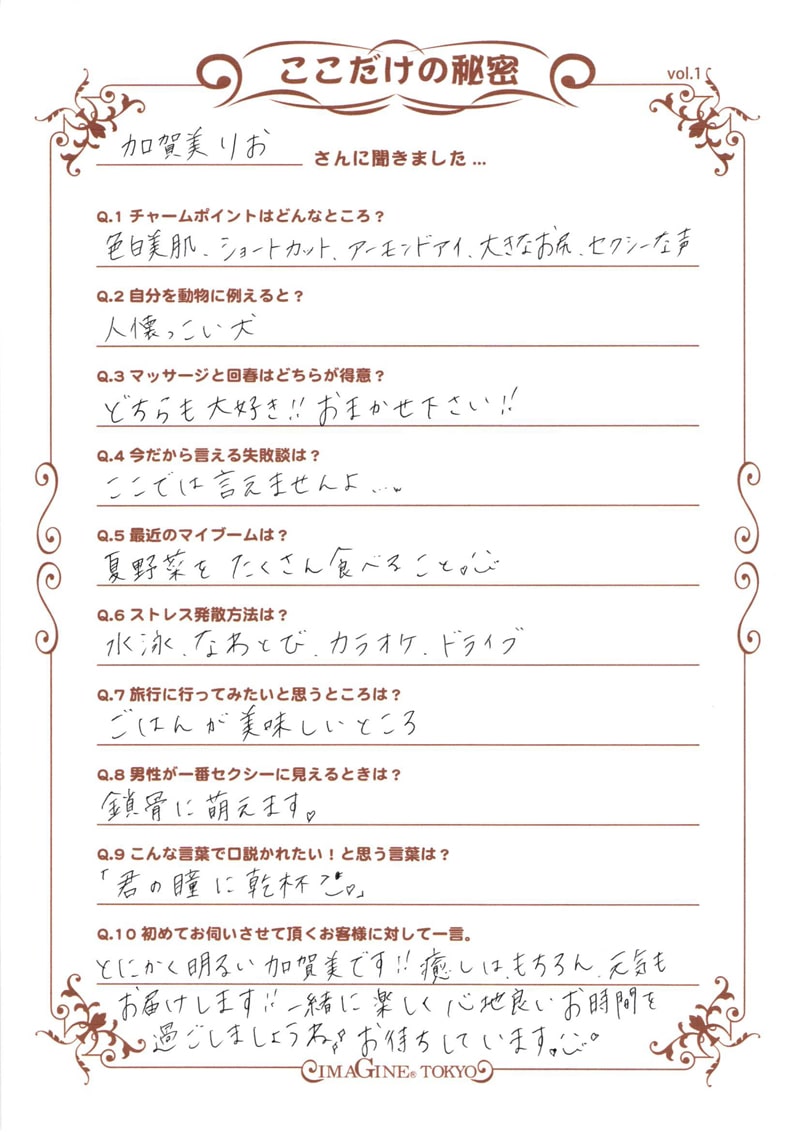 ここだけの秘密
vol.1
加賀美りお さんに聞きました...
Q.1 チャームポイントはどんなところ？
色白美肌、ショートカット、アーモンドアイ、大きなお尻、セクシーな声
Q.2 自分を動物に例えると？
人懐っこい犬
Q.3 マッサージと回春はどちらが得意？
どちらも大好き!! おまかせ下さい!!
Q.4 今だから言える失敗談は？
ここでは言えませんよ...。
Q.5 最近のマイブームは？
夏野菜をたくさん食べること。
Q.6 ストレス発散方法は？
水泳、なわとび、カラオケ、ドライブ
Q.7 旅行に行ってみたいと思うところは？
ごはんが美味しいところ
Q.8 男性が一番セクシーに見えるときは？
鎖骨に萌えます♡
Q.9 こんな言葉で口説かれたい！と思う言葉は？
「君の瞳に乾杯」
Q.10 初めてお伺いさせて頂くお客様に対して一言。
とにかく明るい加賀美です!! 癒しは、もちろん、元気も
お届けします!! 一緒に楽しく心地良いお時間を
過ごしましょうね♪ お待ちしています。
IMAGINE® TOKYO